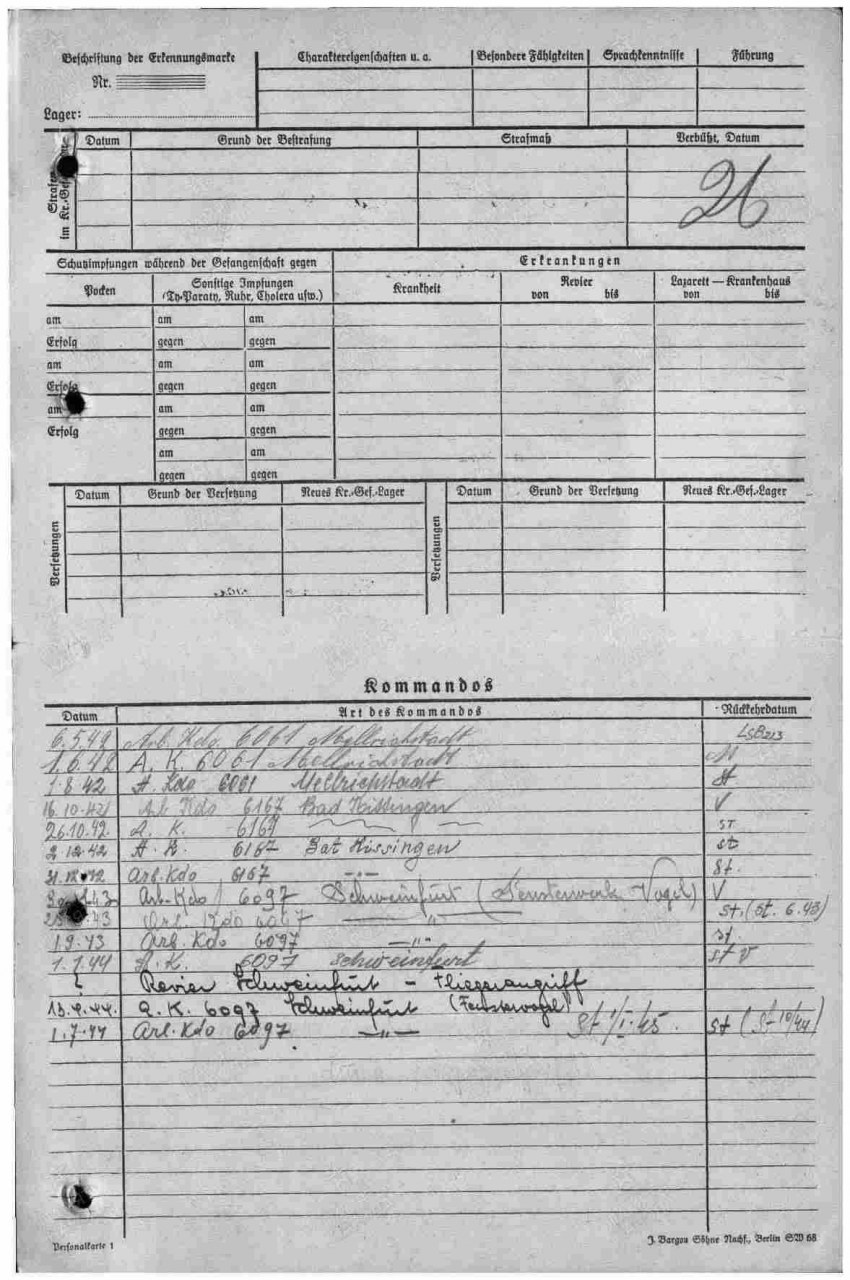 Beschriftung der Erkennungsmarke
Nr.
Lager:
Charaktereigenschaften u. a.
Besondere Fähigkeiten
Sprachkenntnisse
Führung
Strafen im Kr.-Gef.
Datum
Grund der Bestrafung
Strafmaß
Verbüßt, Datum
26
Schutzimpfungen während der Gefangenschaft gegen
Erkrankungen
Pocken
Sonstige Impfungen
(Ty-Paraty, Ruhr, Cholera usw.)
Krankheit
Revier
von bis
Lazarett — Krankenhaus
von bis
am am am
Erfolg gegen gegen
am am am
Erfolg gegen gegen
am am am
Erfolg gegen gegen
am am
gegen gegen
Versetzungen
Datum Grund der Versetzung Neues Kr.-Gef.-Lager
Versetzungen
Datum Grund der Versetzung Neues Kr.-Gef.-Lager
Kommandos
Datum Art des Kommandos Rückkehrdatum
6.5.42 Arb. Kdo. 6061 Mellrichstadt
1.6.42 A. K. 6061 Mellrichstadt
1.8.42 A. Kdo 6061 Mellrichstadt
16.10.42 Arb Kdo 6167 Bad Kissingen V
26.10.42. A. K. 6167 st
2.12.42 A. K. 6167 Bat Kissingen st
31.12.42 Arb. Kdo 6167 —„— st.
Arb. Kdo 6097 Schweinfurt ( Vogel) V
43 Arb. Kdo 6097 —„— st. (St. 6.43)
1.9.43 Arb. Kdo 6097 —„— st.
1.1.44 A. K. 6097 Schweinfurt st V
Revier Schweinfurt - Fliegerangriff
13.4.44. A. K. 6097 Schweinfurt
1.7.44 Arb. Kdo 6097 —„— St 1/I.45. st (St 10/44)
Personalkarte 1
J. Bargou Söhne Nachf., Berlin SW 68